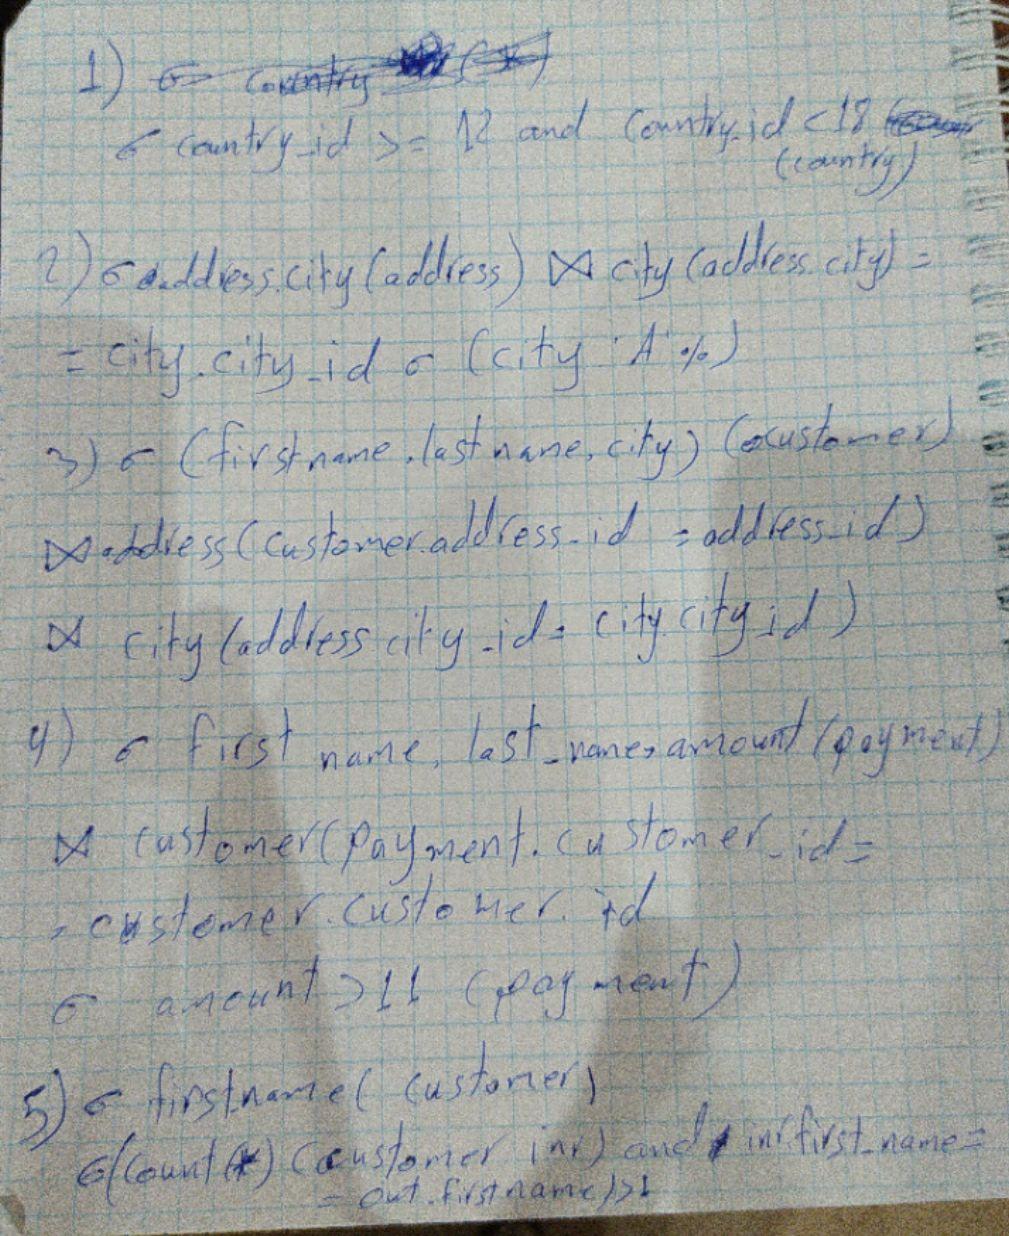 1) σ country
σ country_id >= 12 and Country_id < 18
(country)
2) σ address.city (address) ⋈ city (address.city) =
= city.city_id σ (city 'A' %)
3) σ (firstname, lastname, city) (customer)
⋈ address (customer.address_id = address_id)
⋈ city (address city_id = city.city_id)
4) σ first name, last_name, amount (payment)
⋈ customer (payment.customer_id =
= customer.customer.id
σ amount > 11 (payment)
5) σ firstname (customer)
σ (count (*) (customer inr) and inr.first_name =
= out.firstname) > 1